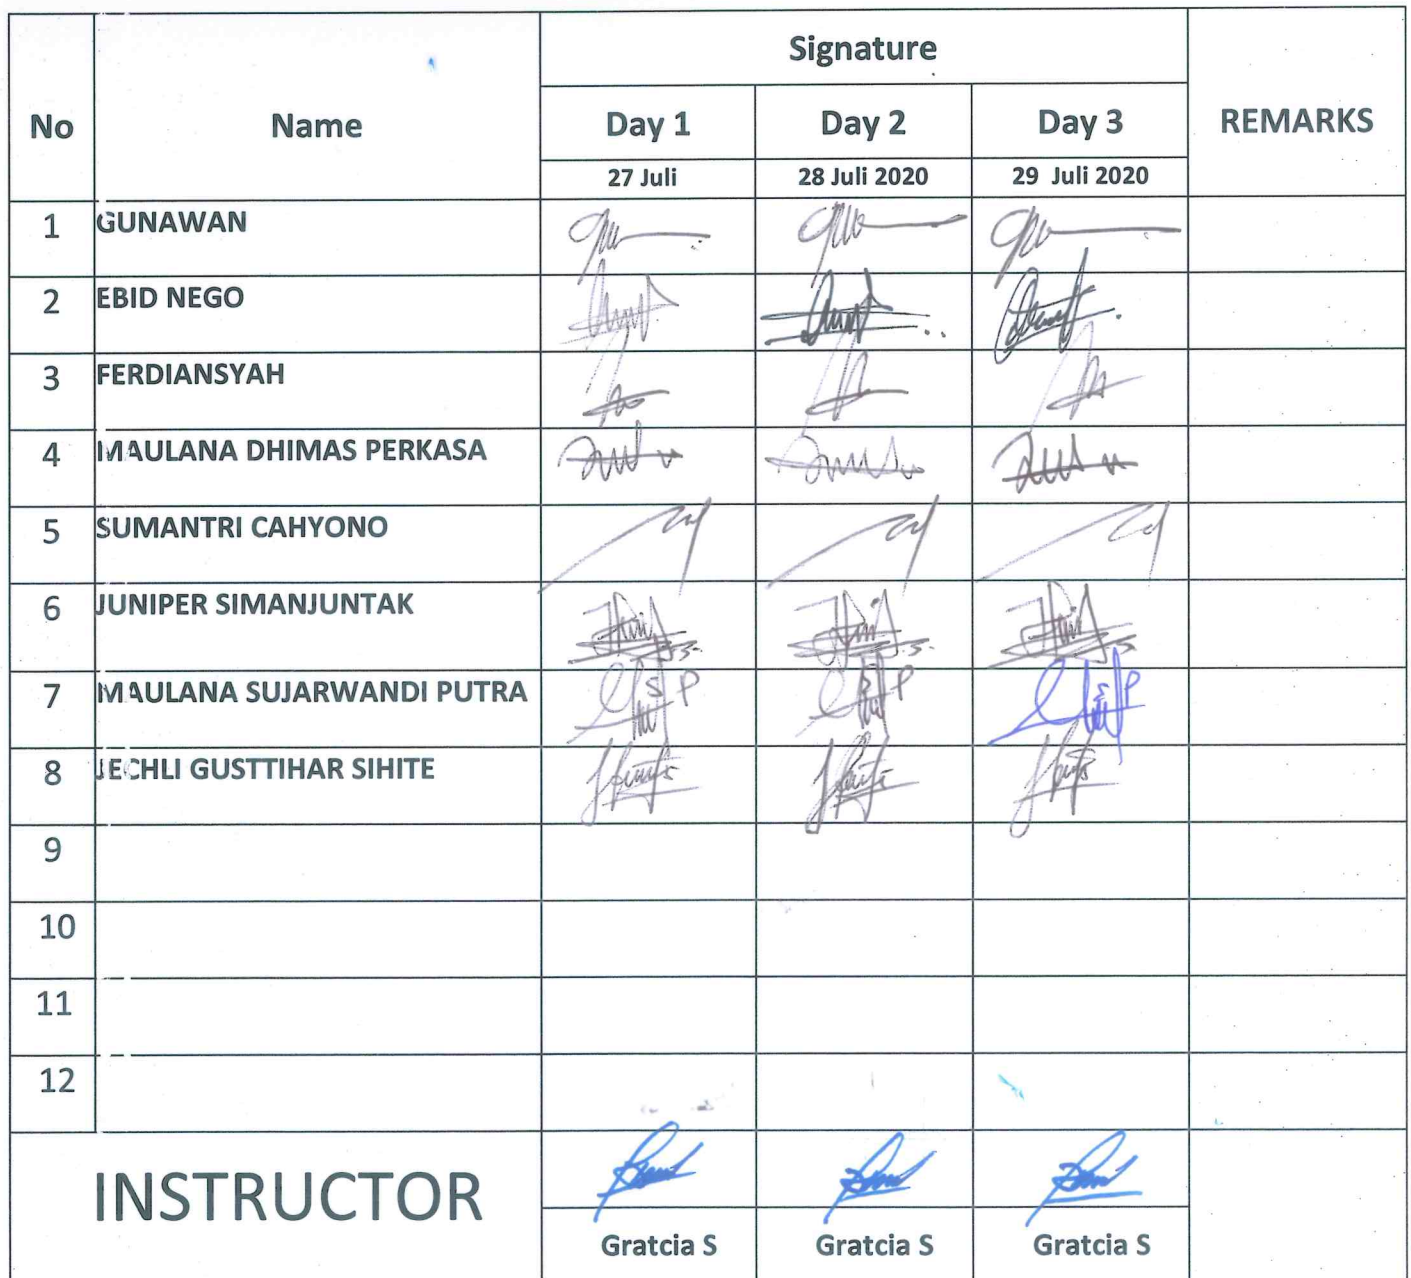 Signature
No Name Day 1 Day 2 Day 3 REMARKS
27 Juli 28 Juli 2020 29 Juli 2020
1 GUNAWAN
2 EBID NEGO
3 FERDIANSYAH
4 MAULANA DHIMAS PERKASA
5 SUMANTRI CAHYONO
6 JUNIPER SIMANJUNTAK
7 MAULANA SUJARWANDI PUTRA
8 JECHLI GUSTTIHAR SIHITE
9
10
11
12
INSTRUCTOR
Gratcia S Gratcia S Gratcia S